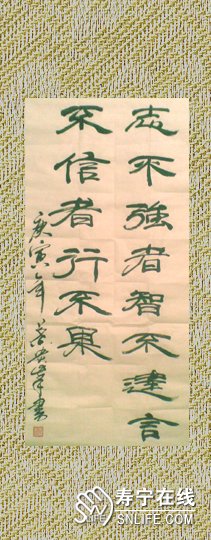 志不強者智不達言
不信者行不果
庚寅年 書
寿宁在线
SNLIFE.COM